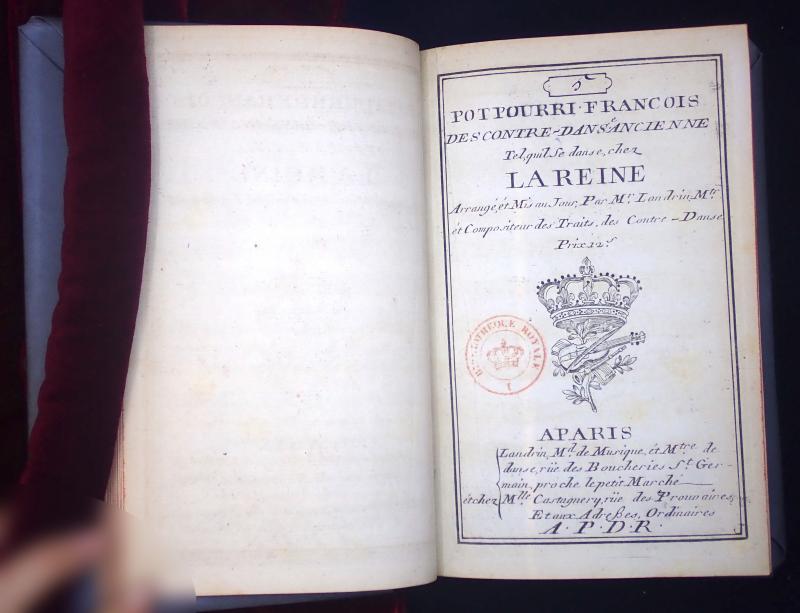 5
POTPOURRI·FRANCOIS
DES CONTRE-DANSE ANCIENNE
Tel, qu'il Se danse, chez
LA REINE
Arrangé, ét Mis au Jour, Par Mr. Landrin, Mtr.
ét Compositeur des Traits, des Contre-Danse
Prix 12 s
BIBLIOTHEQUE ROYALE
A PARIS
Landrin, Md. de Musique, ét Mtre de
danse, rüe des Boucheries St. Ger-
main, proche le petit Marché
ét chez Mlle Castagnery, rüe des Prouvaires,
Et aux Adresses, Ordinaires
A·P·D·R·